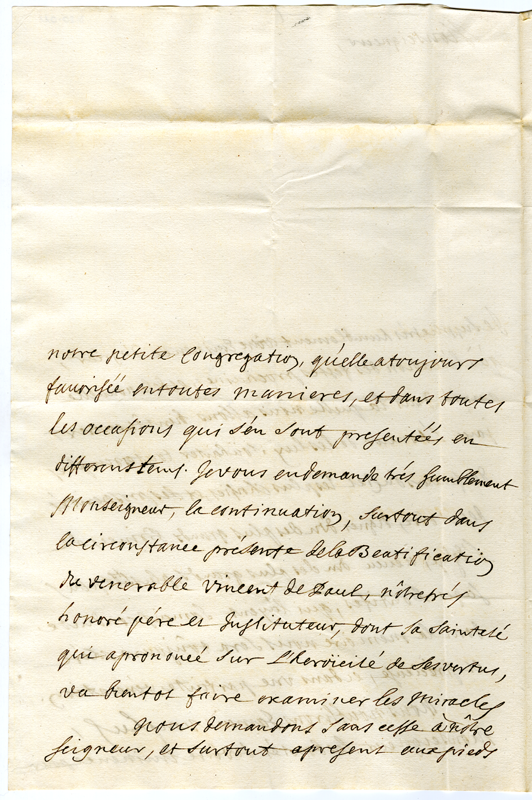 notre petite Congregation, qu'elle a toujours
favorisée en toutes manieres, et dans toutes
les occasions qui s'en sont presentées en
differens tems. Je vous en demande trés humblement
Monseigneur, la continuation, surtout dans
la circonstance présente de la Beatification
du venerable Vincent de Paul, nôtre trés
honoré pére et Instituteur, dont sa Sainteté
qui a prononcé sur L'heroïcité de ses vertus,
va bientot faire examiner les Miracles
nous demandons sans cesse à nôtre
seigneur, et surtout apresent aux pieds